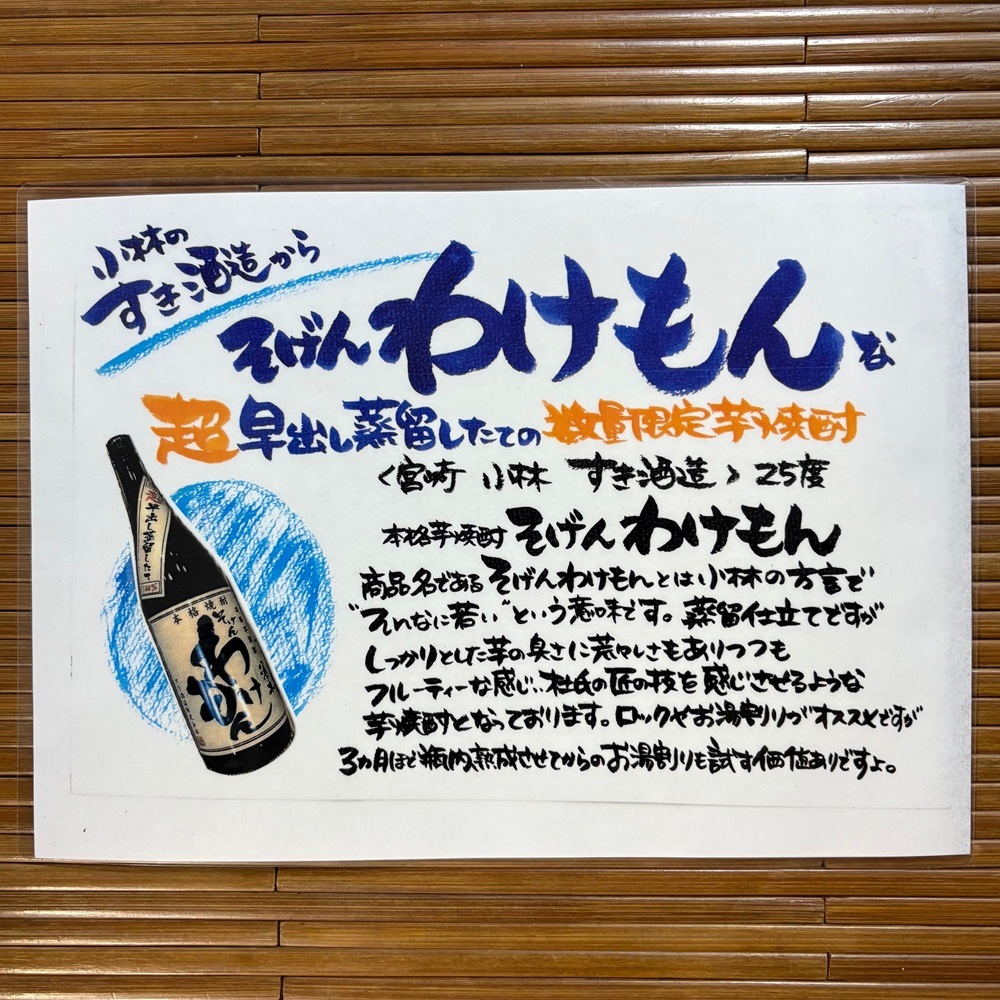 小林の
すき酒造から
そげんわけもんな
超早出し蒸留したての数量限定芋焼酎
〈宮崎 小林 すき酒造〉25度
本格芋焼酎 そげんわけもん
商品名であるそげんわけもんとは小林の方言で
"そんなに若い"という意味です。蒸留仕立てですが
しっかりとした芋の臭さに荒々しさもありつつも
フルーティーな感じ…杜氏の匠の技を感じさせるような
芋焼酎となっております。ロックやお湯割りがオススメですが
3カ月ほど瓶内熟成させてからのお湯割りも試す価値ありですよ。
超早出し蒸留したて
本格焼酎
そげん
わけもん